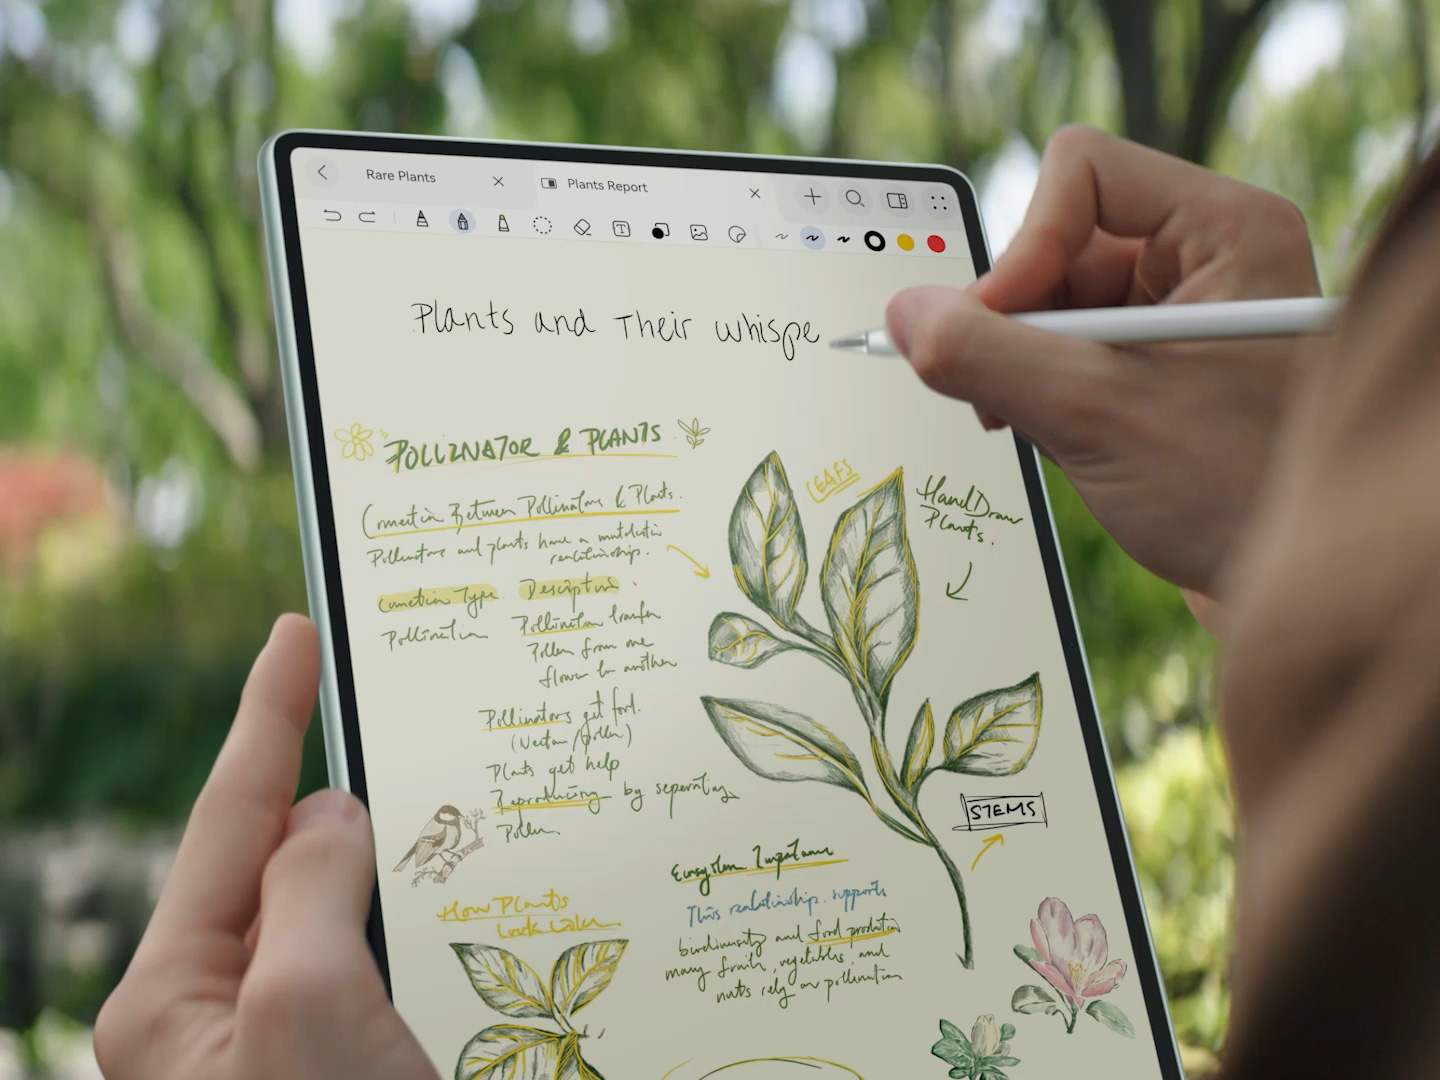 Rare Plants
Plants Report
Plants and Their Whispe
POLLINATOR & PLANTS
LEAFS
Hand Draw
Plants.
Connection Between Pollinators & Plants.
Pollinators and plants have a mutualistic
realationship.
Connection Type Description
Pollination Pollination transfer
Pollen from one
flower to another
Pollinators get food.
(Nectar/pollen)
Plants get help
Reproducing by seperating
Pollen.
STEMS
Ecosystem Importance
This realationship supports
biodiversity and food production
many fruits, vegetables, and
nuts rely on pollination
How Plants
Look Like